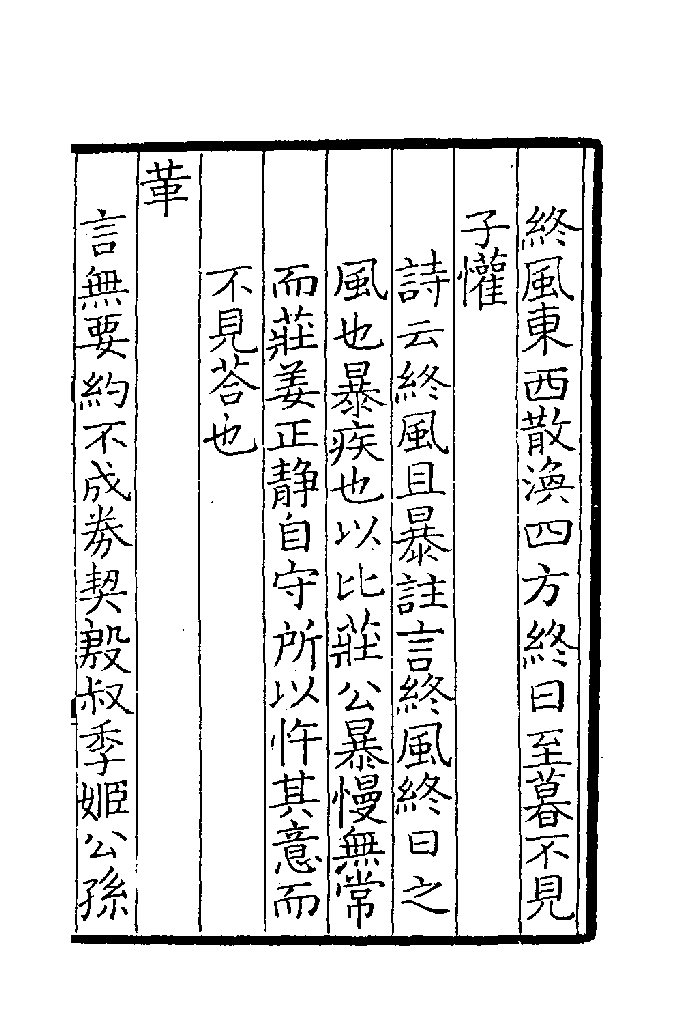 終風東西散渙四方終日至暮不見
子懽
詩云終風且暴註言終風終日之
風也暴疾也以比莊公暴慢無常
而莊姜正靜自守所以忤其意而
不見荅也
革
言無要約不成劵契殷叔季姬公孫